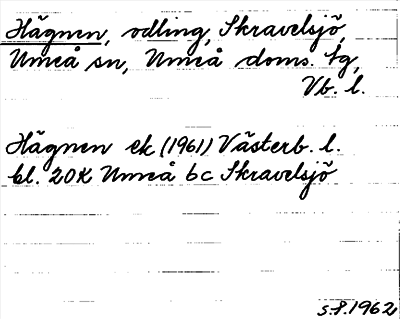 Hägnen, odling, Skravelsjö,
Umeå sn, Umeå doms. tg,
Vb. l.
Hägnen ek (1961) Västerb. l.
bl. 20K Umeå 6c Skravelsjö
s.f. 1962